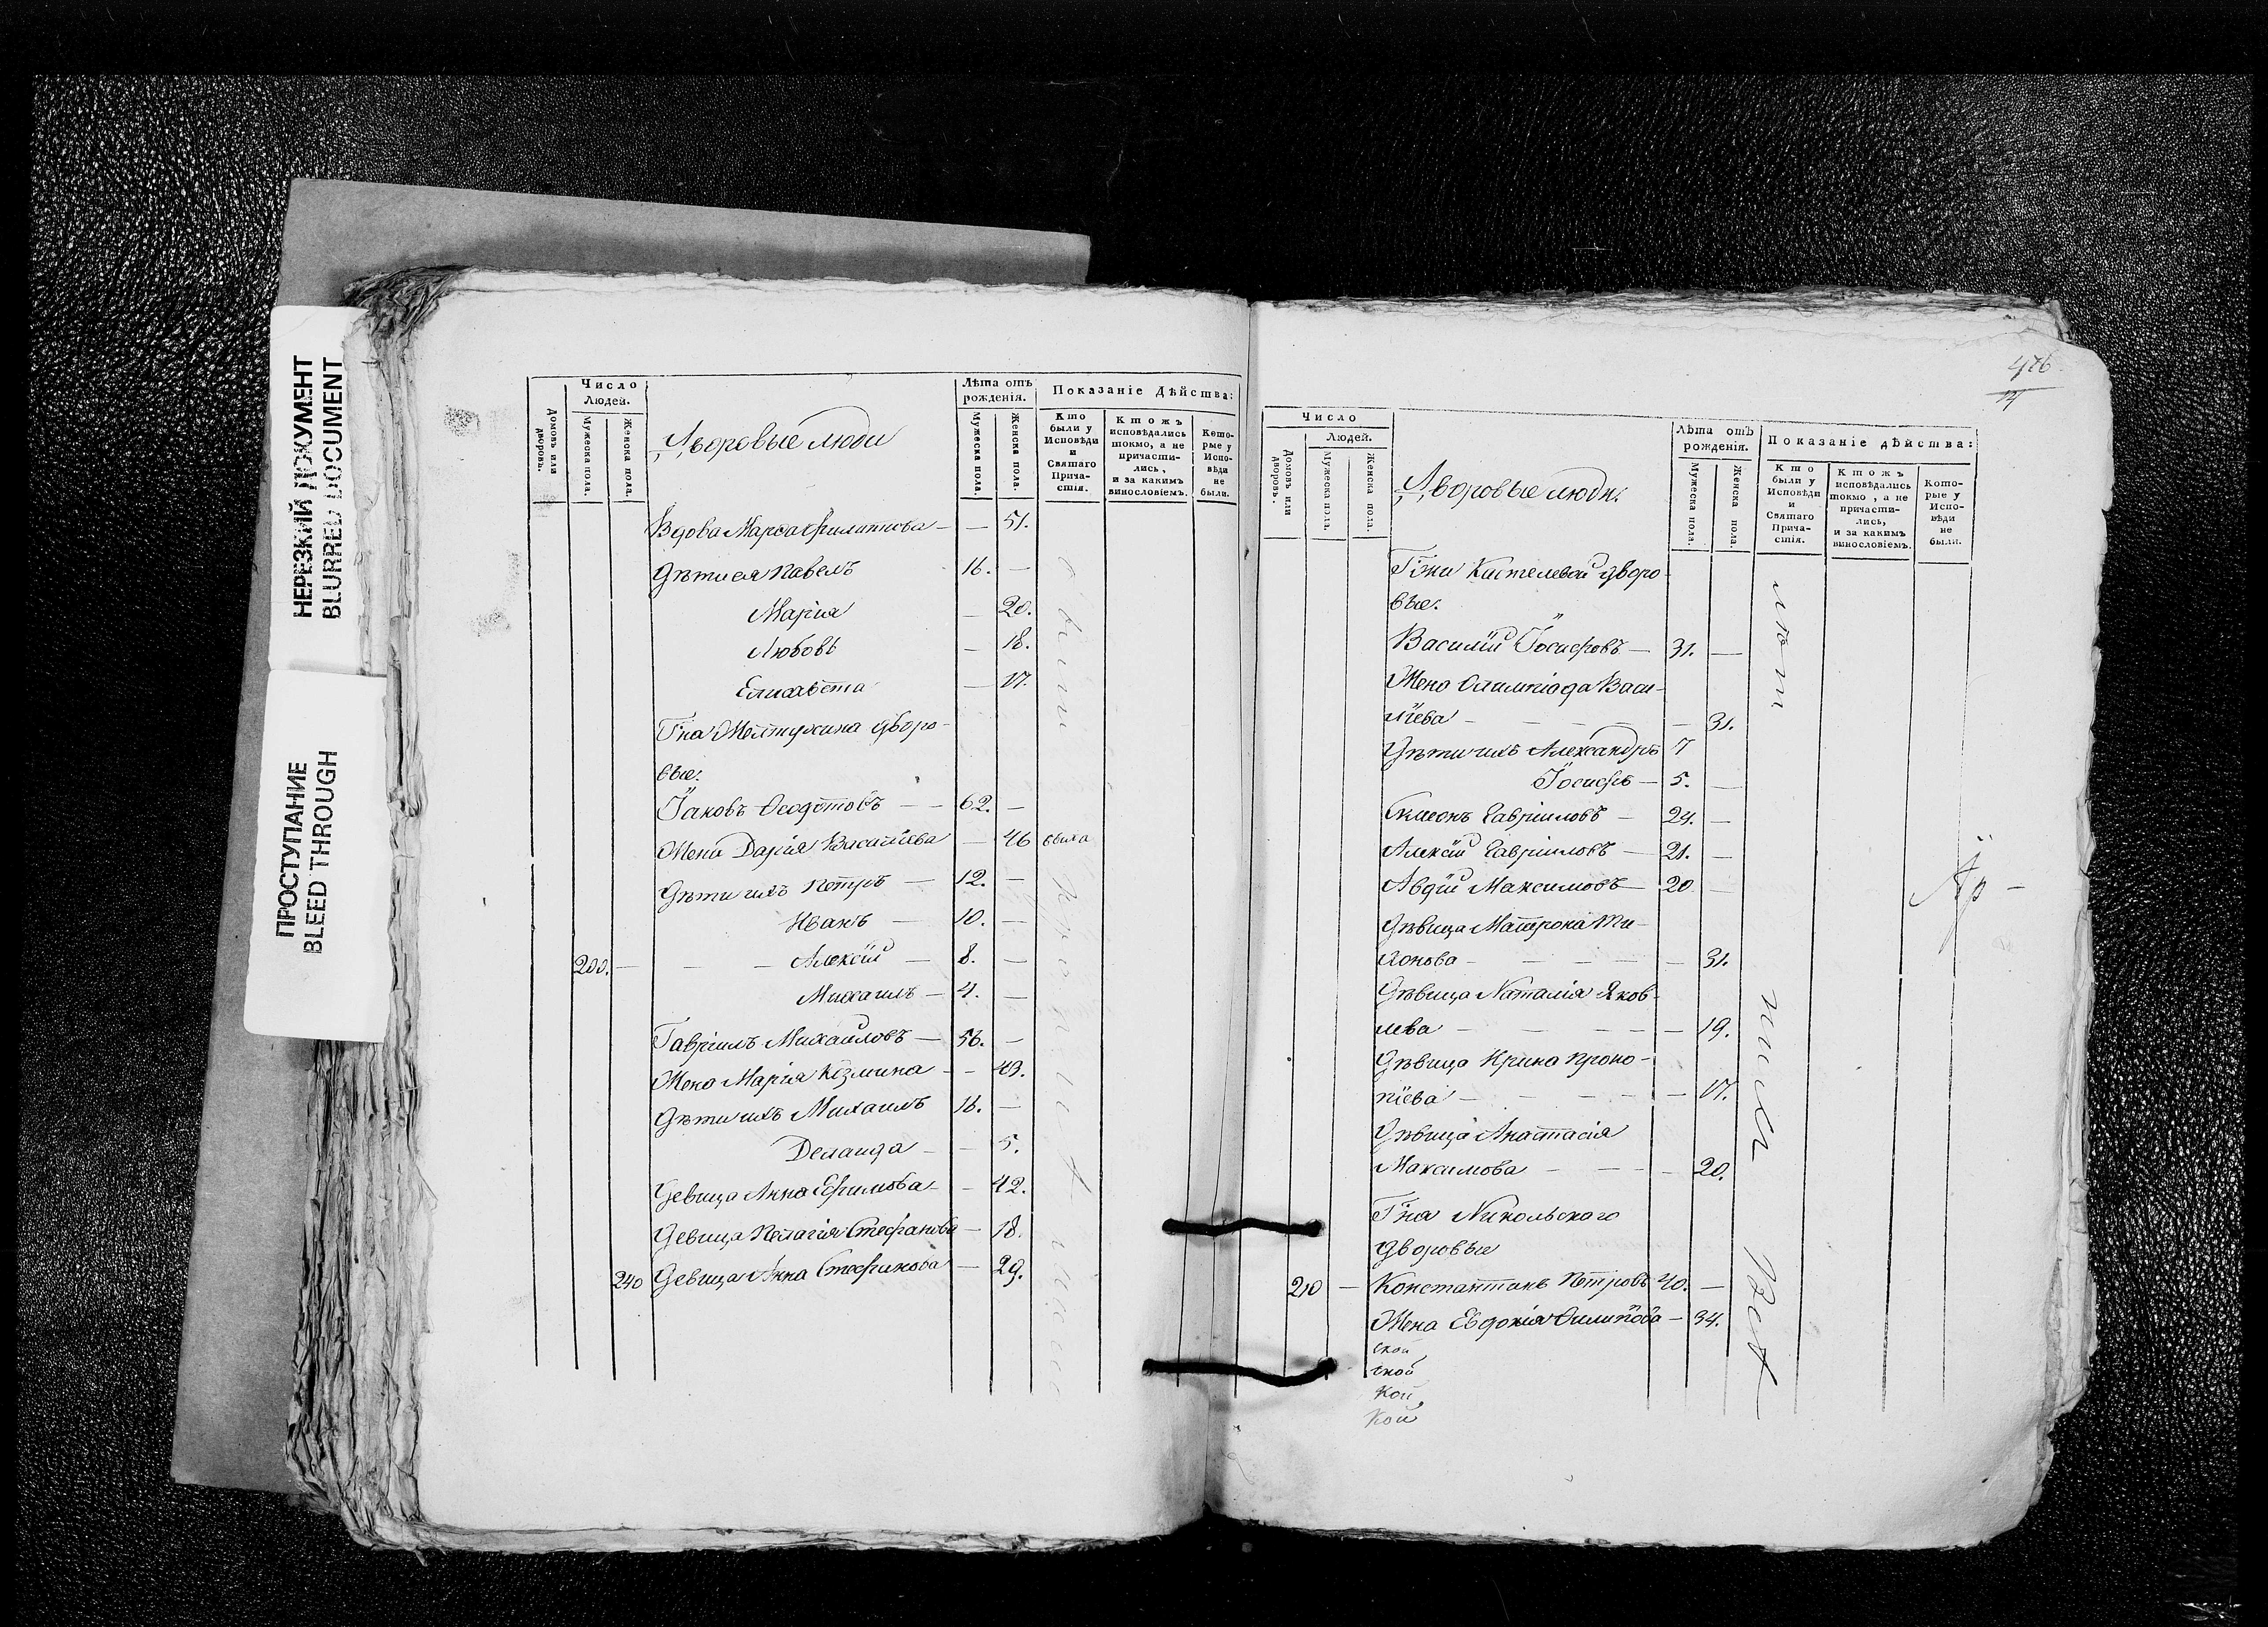 НЕРЕЗКИЙ ДОКУМЕНТ
BLURRED DOCUMENT
ПРОСТУПАНИЕ
BLEED THROUGH
Домовъ или дворовъ.
Число Людей.
Мужеска пола.
Женска пола.
Дворовые люди
Лѣта отъ рожденія.
Мужеска пола.
Женска пола.
Показаніе Дѣйства:
Кто были у Исповѣди и Святаго Причастія.
Ктожъ исповѣдались токмо, а не причастились, и за какимъ винословіемъ.
Которые у Исповѣди не были.
Вдова Марѳа Филиппова — — 51.
Дѣти ея Павелъ 16. —
Марія — 20.
Любовь — 18.
Елисавета — 17.
Г͠на Желтухина дворо-
вые.
Іаковъ Ѳеодотовъ — — 62. —
Жена Дарія Васильева — 46
Дѣти ихъ Петръ — 12. —
Иванъ — 10. —
200. — — — Алексій — 8. —
Михаилъ — 4. —
Гавріилъ Михаиловъ — 56. —
Жена Марія Козмина — — 43.
Дѣти ихъ Михаилъ 16. —
— — 5.
Девица Анна Ефимова — — 42.
Девица Пелагія Стефанова — 18.
240 Девица Анна Стефанова — 29.
476
Домовъ или дворовъ.
Число Людей.
Мужеска пола.
Женска пола.
Дворовые люди.
Лѣта отъ рожденія.
Мужеска пола.
Женска пола.
Показаніе дѣйства:
Кто были у Исповѣди и Святаго Причастія.
Ктожъ исповѣдались токмо, а не причастились, и за какимъ винословіемъ.
Которые у Исповѣди не были.
Г͠жи дворо-
вые.
Василій Іосифовъ — 31. —
Жена Олимпіада Васи-
ліева — — — — — 31.
Дѣти ихъ Александръ 7
Іосифъ — 5. —
Симеонъ Гавріиловъ — 24. —
Алексій Гавріиловъ — 21. —
Авдій Максимовъ — 20 —
Дѣвица Матрона Ти-
хонова — — — — — 31.
Дѣвица Наталія Яков-
лева — — — — — 19.
Дѣвица Ирина Проко-
піева — — — — — 17.
Дѣвица Анастасія
Максимова — — — — 20.
Г͠на Никольскаго
дворовые
210 — Константинъ Петровъ 40. —
Жена Евдокія Филипова — 34.
ской
ской
кой
кой